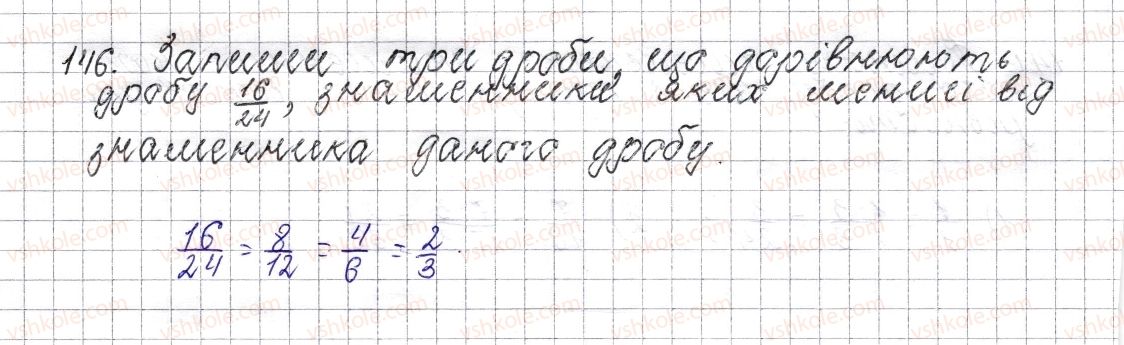 146. Запиши три дроби, що дорівнюють
дробу 16/24, знаменники яких менші від
знаменника даного дробу.
16/24 = 8/12 = 4/6 = 2/3.